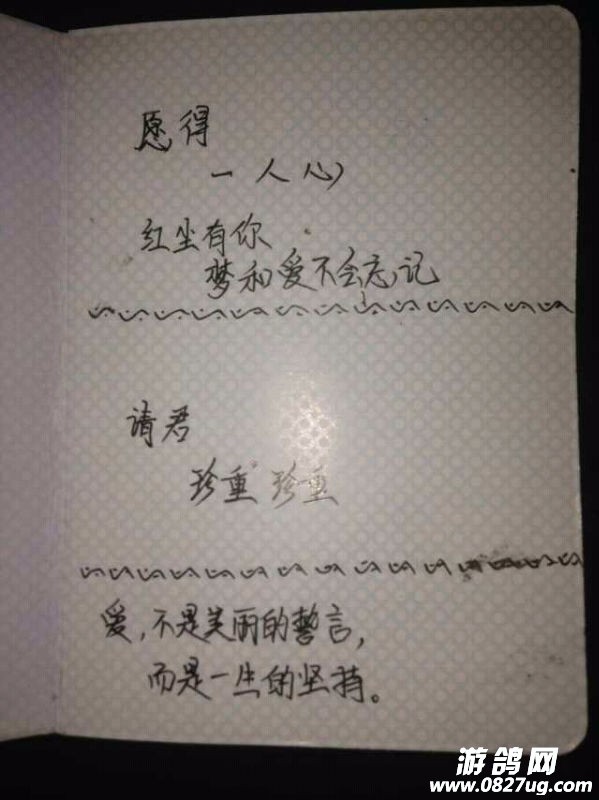 愿得
一人心
红尘有你
梦和爱不会忘记
请君
珍重 珍重
爱,不是美丽的誓言,
而是一生的坚持。
游鸽网
www.0827ug.com